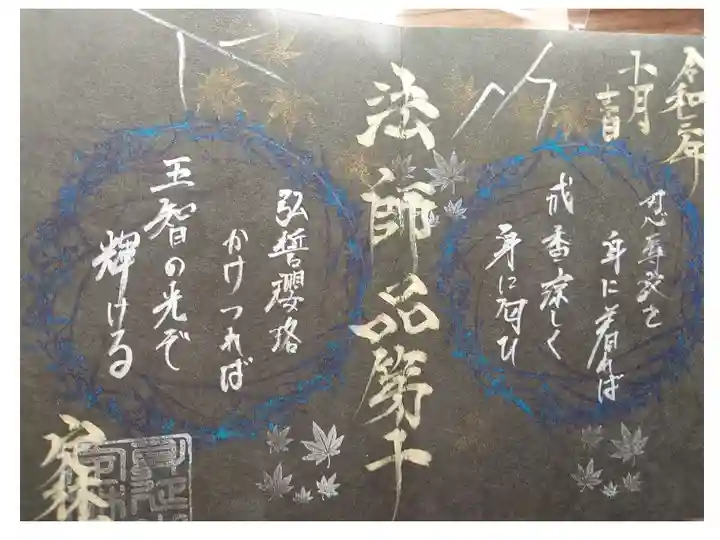 十月
吉日
忍辱衣を
身に着れば
戒香涼しく
身に匂ひ
法師品第十
弘誓瓔珞
かけつれば
五智の光ぞ
輝ける